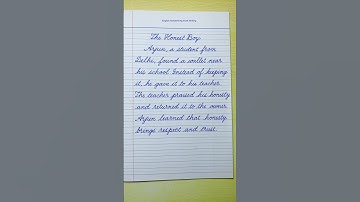 The Honest Boy
Arjun, a student from
Delhi, found a wallet near
his school. Instead of keeping
it, he gave it to his teacher.
The teacher praised his honesty
and returned it to the owner.
Arjun learned that honesty
brings respect and trust.